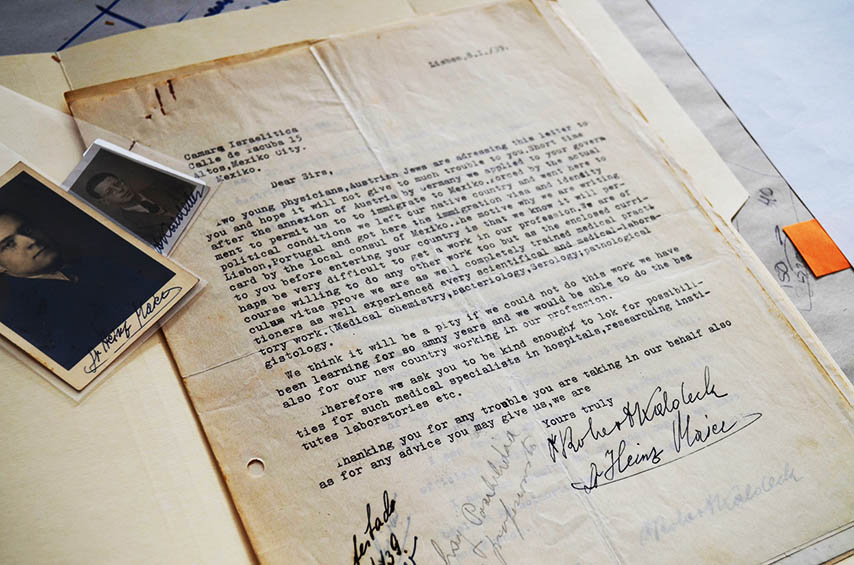 Lisbon,8.I./39.
Camara Israelitica
Calle de Tacuba 15
altos,Mexiko City.
Mexiko.
Dear Sirs,
Two young physicians,Austrian Jews are adressing this letter to
you and hope it will not give to much trouble to you.Short time
after the annexion of Austria by Germany we applied to your govern
ment to permit us to to immigrate to Mexiko.Forced by the actual
political conditions we left our native country and went here to
Lisbon,Portugal and got here the immigration visa and identity
card by the local consul of Mexiko.The motive why we are writing
to you before entering your country is that we know it will per=
haps be very difficult to get a work in our profession.We are of
course willing to do any other work too but as the enclosed curri=
culum vitae prove we are as well completly trained medical practi
tioners as well experienced every scientifical and medical-labora-
tory work.(Medical chemistry,bacteriology,Serology,pathological
gistology.
We think it will be a pity if we could not do this work we have
been learning for so amny years and we would be able to do the bes
also for our new country working in our profession.
Therefore we ask you to be kind enough to lok for possibili-
ties for such medical specialists in hospitals,researching insti-
tutes laboratories etc.
Thanking you for any trouble you are taking in our behalf also
as for any advice you may give us,we are
Yours truly
Dr Robert Kaldeck
Dr Heinz Maier
Dr Heinz Maier
Dr Robert Kaldeck